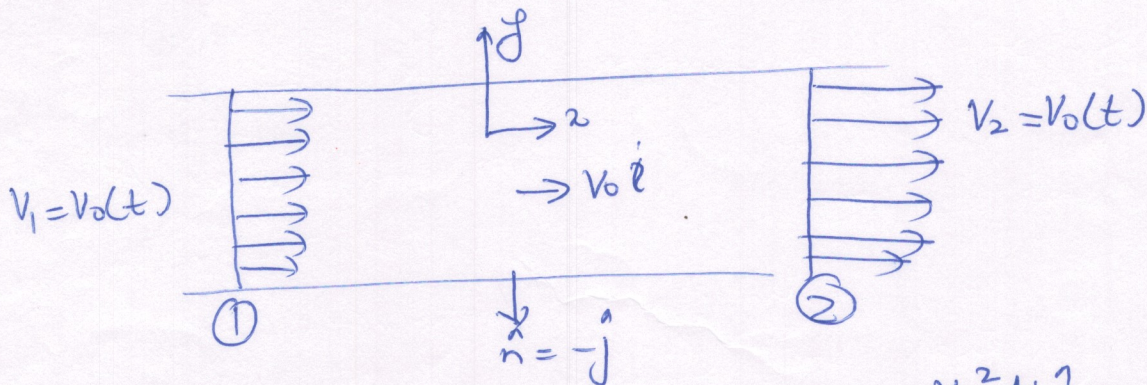 y
x
V₂ = V₀(t)
V₀ î
V₁ = V₀(t)
① ②
n̂ = -ĵ